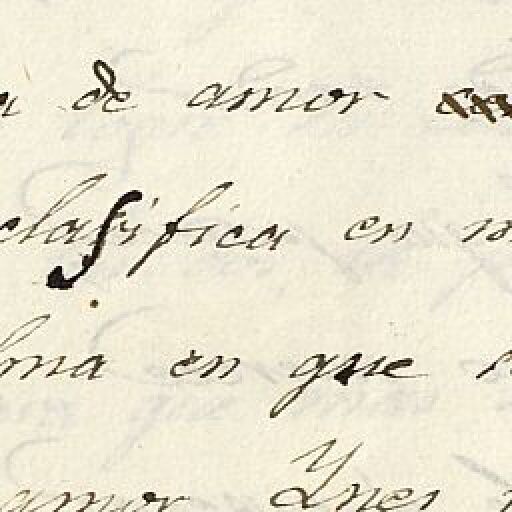 de amor
clasifica en
en que
amor Ynes